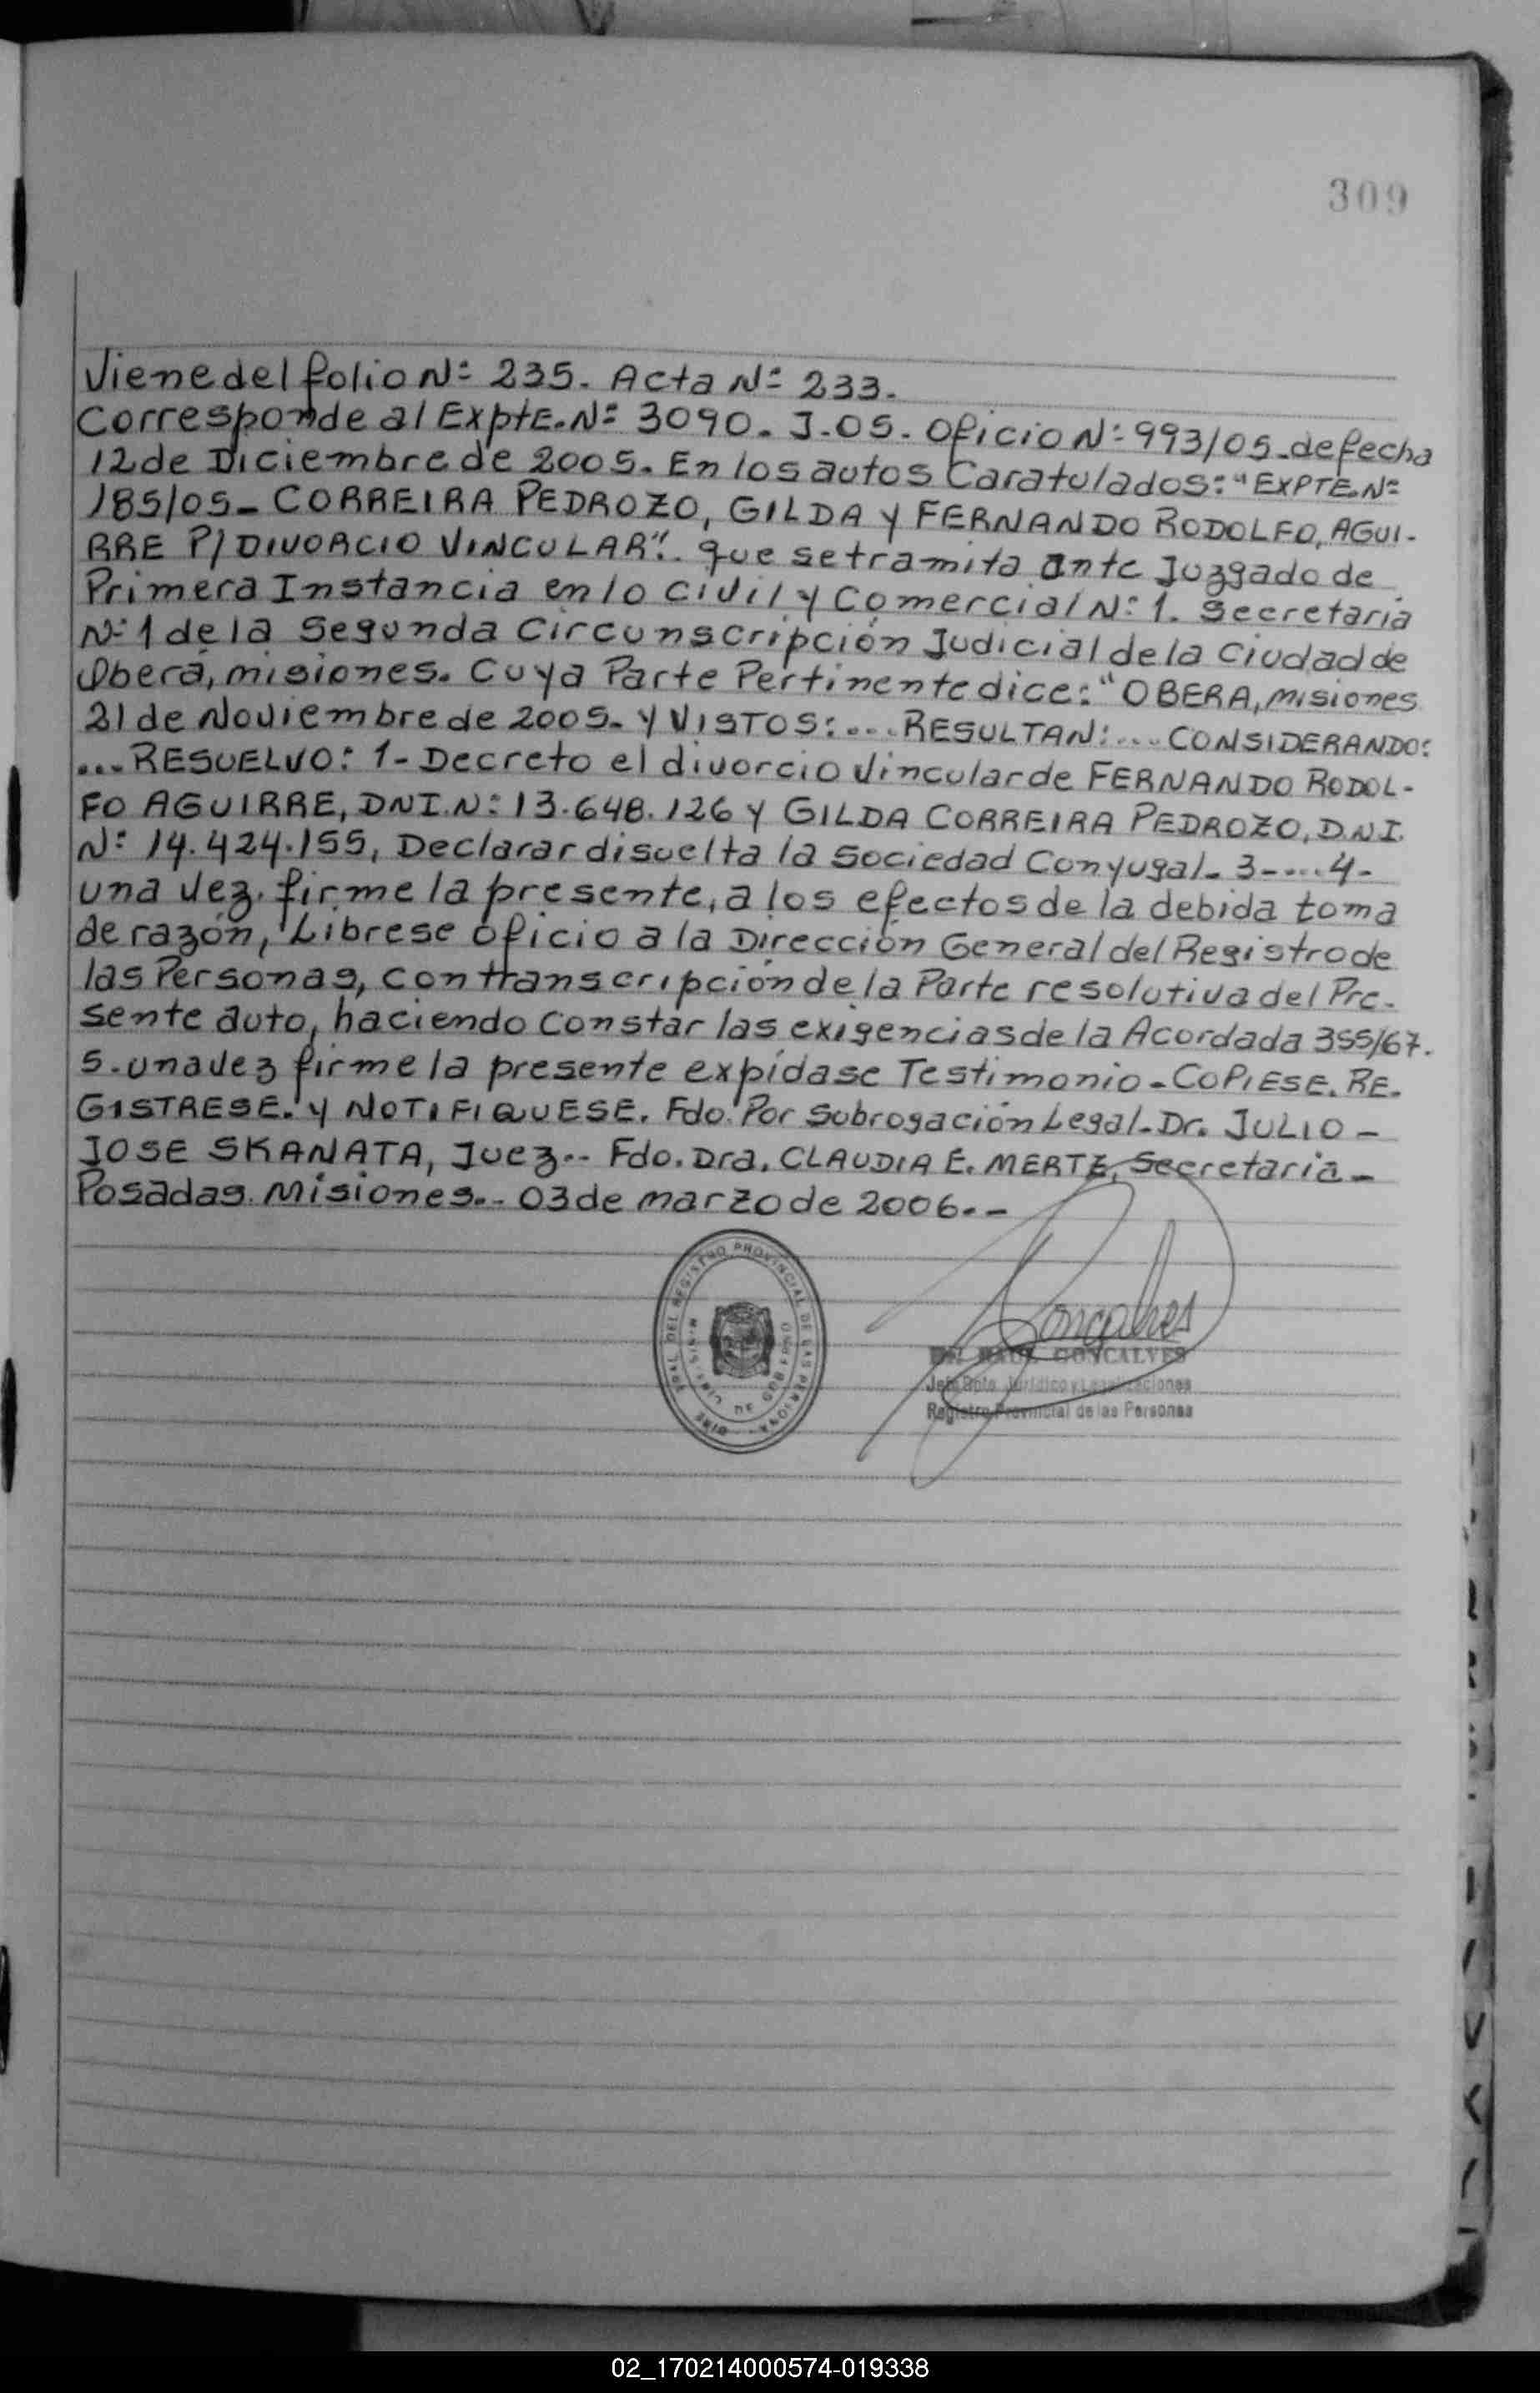 309
Viene del folio Nº 235. Acta Nº 233.
Corresponde al ExptE. Nº 3090. J-05. Oficio Nº 993/05. de fecha
12 de Diciembre de 2005. En los autos Caratulados: "EXPTE. Nº
185/05_ CORREIRA PEDROZO, GILDA y FERNANDO RODOLFO, AGUI-
RRE P/ DIVORCIO VINCULAR". que se tramita ante Juzgado de
Primera Instancia en lo Civil y Comercial Nº 1. Secretaria
Nº 1 de la Segunda Circunscripción Judicial de la Ciudad de
Oberá, misiones. Cuya Parte Pertinente dice: "OBERA, misiones
21 de Noviembre de 2005. Y VISTOS: .... RESULTAN: .... CONSIDERANDO:
... RESUELVO: 1- Decreto el divorcio Vincular de FERNANDO RODOL-
FO AGUIRRE, DNI. Nº 13.648.126 y GILDA CORREIRA PEDROZO, D.N.I.
Nº 14.424.155, Declarar disuelta la Sociedad Conyugal. 3-....4-
una vez. firme la presente, a los efectos de la debida toma
de razón, Librese oficio a la Dirección General del Registro de
las Personas, con transcripción de la Parte resolutiva del Pre-
sente auto, haciendo Constar las exigencias de la Acordada 355/67.
5. una vez firme la presente expídase Testimonio - COPIESE. RE-
GISTRESE. Y NOTIFIQUESE. Fdo. Por Subrogación Legal. Dr. JULIO -
JOSE SKANATA, Juez.- Fdo. Dra. CLAUDIA E. MERTZ, Secretaria -
Posadas. Misiones.- 03 de marzo de 2006.-
DEL REGISTRO PROVINCIAL DE LAS PERSONA
RAUL GONCALVES
Jefe Dpto. Jurídico y Legalizaciones
Registro Provincial de las Personas
02_170214000574-019338